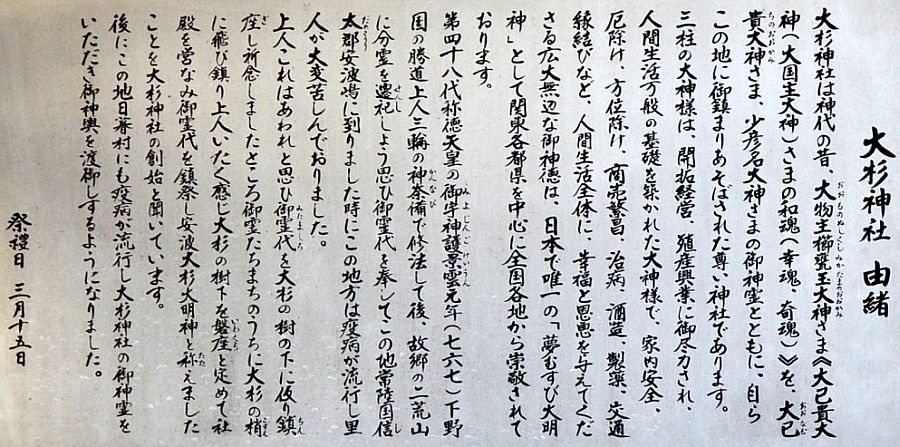 大杉神社 由緒
大杉神社は神代の昔、大物主櫛甕玉大神さま《大己貴大
神(大国主大神)さまの和魂(幸魂、奇魂)》を、大己
貴大神さま、少彦名大神さまの御神霊とともに、自ら
この地に御鎮まりあそばされた尊い神社であります。
三柱の大神様は、開拓経営、殖産興業に御尽力され、
人間生活万般の基礎を築かれた大神様で、家内安全、
厄除け、方位除け、商売繁昌、治病、酒造、製薬、交通
縁結びなど、人間生活全体に、幸福と恩恵を与えてくだ
さる広大無辺な御神徳は、日本で唯一の「夢むすび大明
神」として関東各都県を中心に全国各地から崇敬されて
おります。
第四十八代称徳天皇の御宇神護景雲元年(七六七)下野
国の勝道上人三輪の神奈備で修法して後、故郷の二荒山
に分霊を遷祀しよう思ひ御霊代を奉じて、この地常陸国信
太郡安波嶋に到りました時にこの地方は疫病が流行し里
人が大変苦しんでおりました。
上人これはあわれと思ひ御霊代を大杉の樹の下に仮り鎮
座し祈念しましたところ御霊たちまちのうちに大杉の梢
に飛び鎮り上人いたく感じ大杉の樹下を磐座と定めて社
殿を営なみ御霊代を鎮祭し安波大杉大明神と称えました
ことを大杉神社の創始を聞いています。
後に、この地日暮村にも疫病が流行し大杉神社の御神霊を
いただき御神輿を渡御しするようになりました。
祭禮日 三月十五日